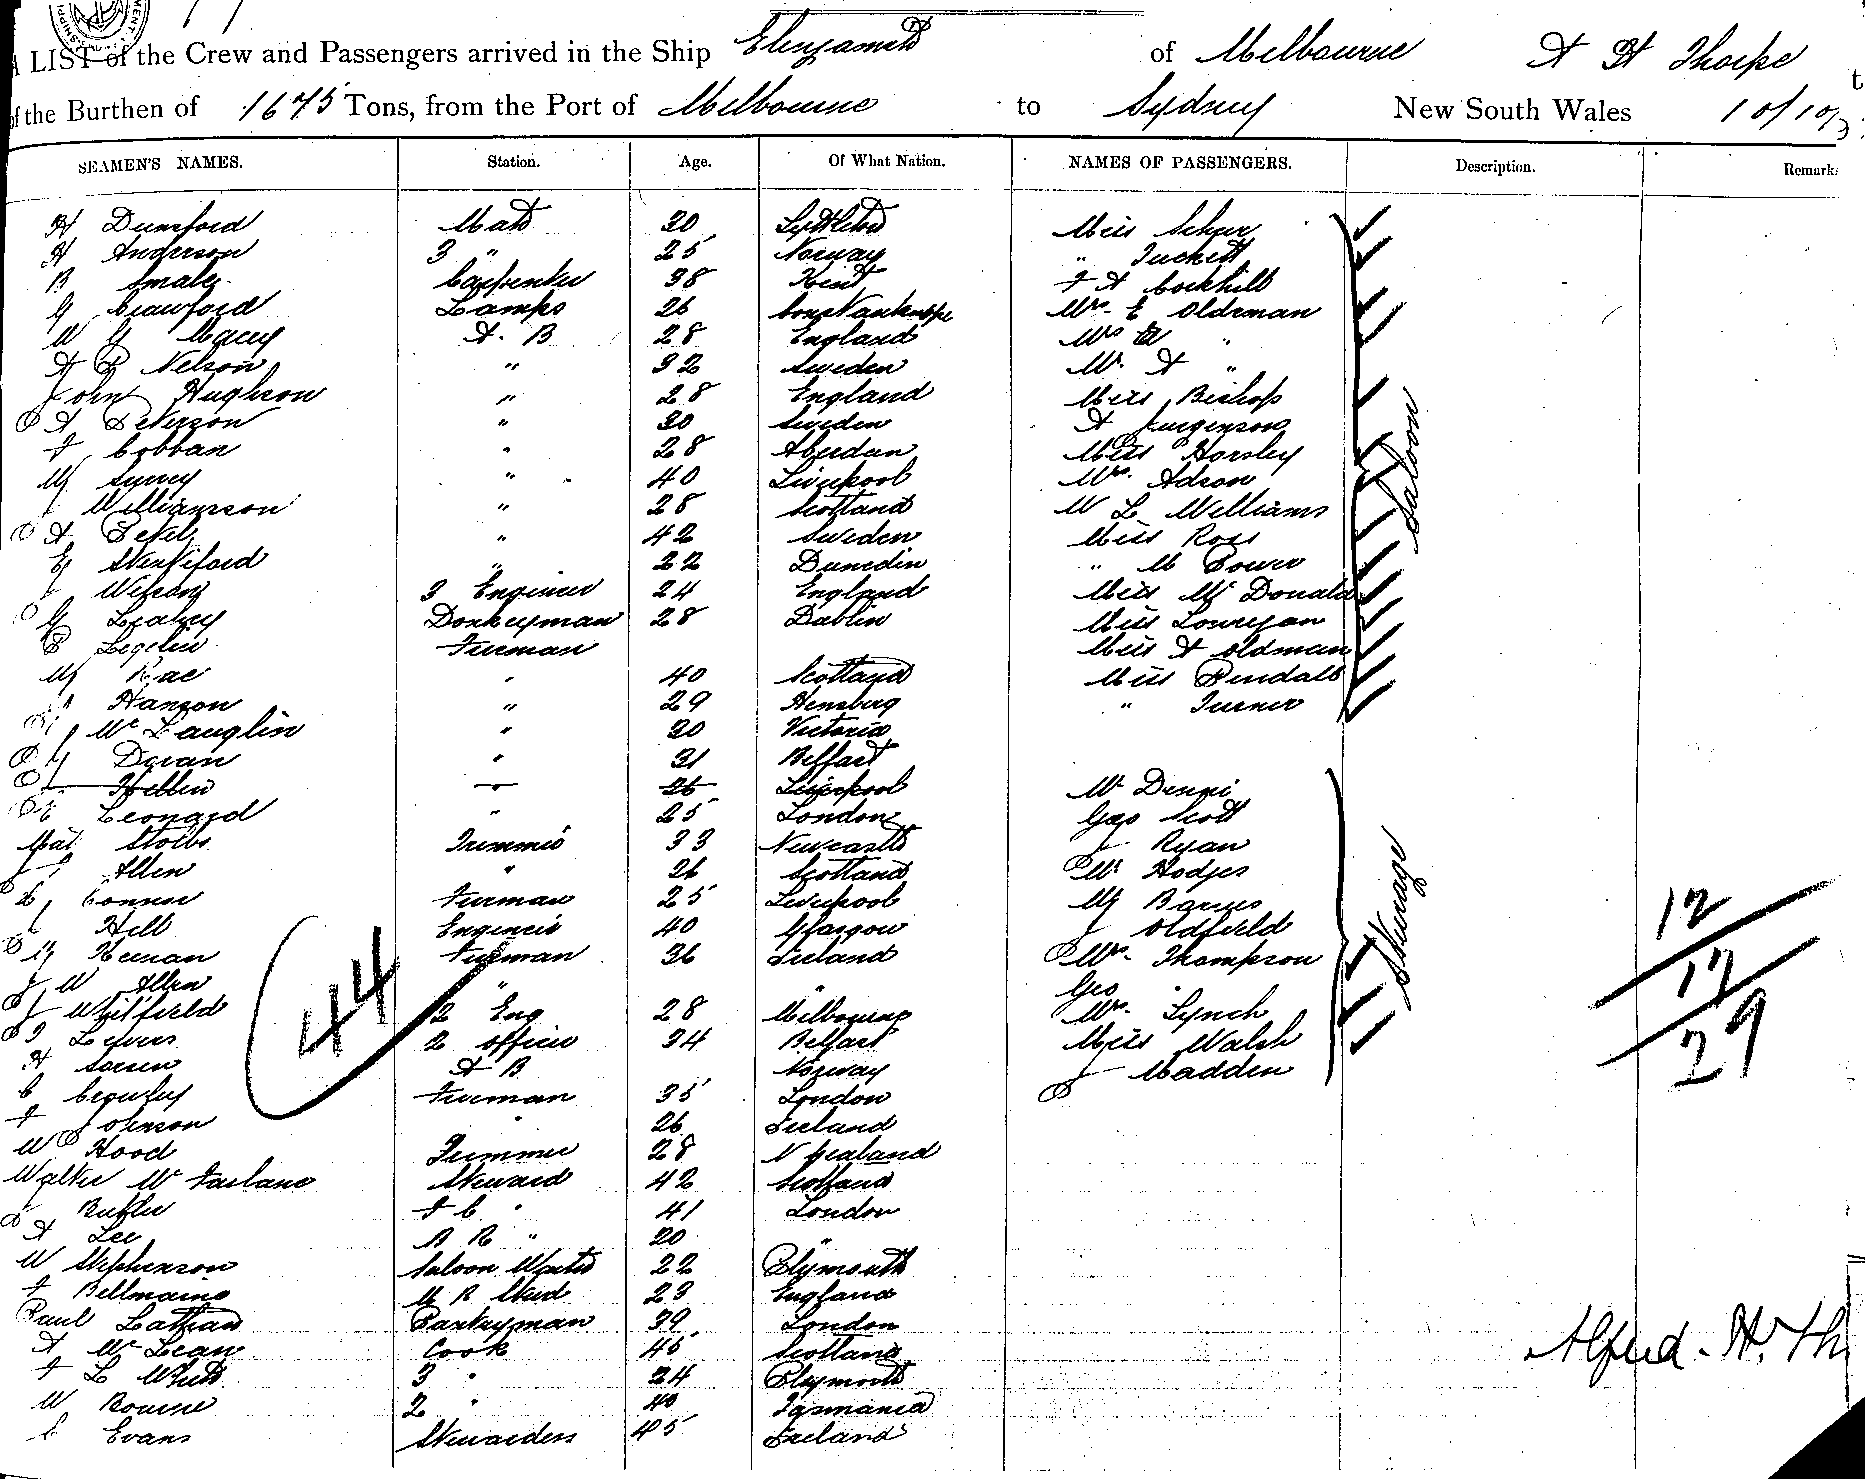 A LIST of the Crew and Passengers arrived in the Ship Elingamite of Melbourne A H Thorpe
of the Burthen of 1675 Tons, from the Port of Melbourne to Sydney New South Wales 10/10/
SEAMEN'S NAMES. Station. Age. Of What Nation. NAMES OF PASSENGERS. Description. Remark
H Dunsford Mate 30 Lyttleton Miss Scheer
A Anderson 3 " 25 Norway " Tuckett
B Smale Carpenter 38 Kent F A Cockhill
G Crawford Lamps 26 Mrs. E Oldman
W G Macey A. B 28 England "
A P Nelson " 32 Sweden Mr. A "
John Hughson " 28 England Miss Bishop
A Peterson " 30 Sweden A Jurgenson
F Cobban " 28 Aberdeen Miss Horsley
M " 40 Liverpool Mrs. Adson
J Williamson " 28 Scotland W L Williams
A " 42 Sweden Miss Ross
" 22 Dunedin " M Power
J Wilson 3 Engineer 24 England Miss McDonald
G Leahey Donkeyman 28 Dublin Miss
P Fireman Miss A Oldman
M Rae " 40 Scotland Miss Rendall
Hanson " 29 " Turner
J McLauglin " 30 Victoria
Doran " 31 Belfast
Hellen " 26 Liverpool W Denni
Leonard " 25 London Geo Scott
Mat Stobbs Trimmer 33 Newcastle J Ryan
J Allen " 26 Scotland W Hodges
Connor Fireman 25 Liverpool M Barnes
Hill Engineer 40 Glasgow J Oldfield
Keenan Fireman 36 Ireland Mr. Thompson
J W Allen " " Geo "
J Whitfield 2 Eng 28 Melbourne Mr. Lynch
2 Officer 34 Belfast Miss Walsh
A B Norway J Madden
C Fireman 35 London
F Johnson " 26 Ireland
W P Hood Trimmer 28 N Zealand
Walter McFarlane Steward 42 Scotland
Butler F C " 41 London
A Lee B R " 20 "
W Stephenson Saloon Waiter 22 Plymouth
F Bellmaine M R Stwd 23 England
Paul Latham Pantryman 39 London
A McLean Cook 45 Scotland
F L White 3 " 24 Plymouth
W Bourne 2 " 40 Tasmania
C Evans Stewardess 45 Ireland
Saloon
Steerage
44
12
17
29
Alfred. H. Th